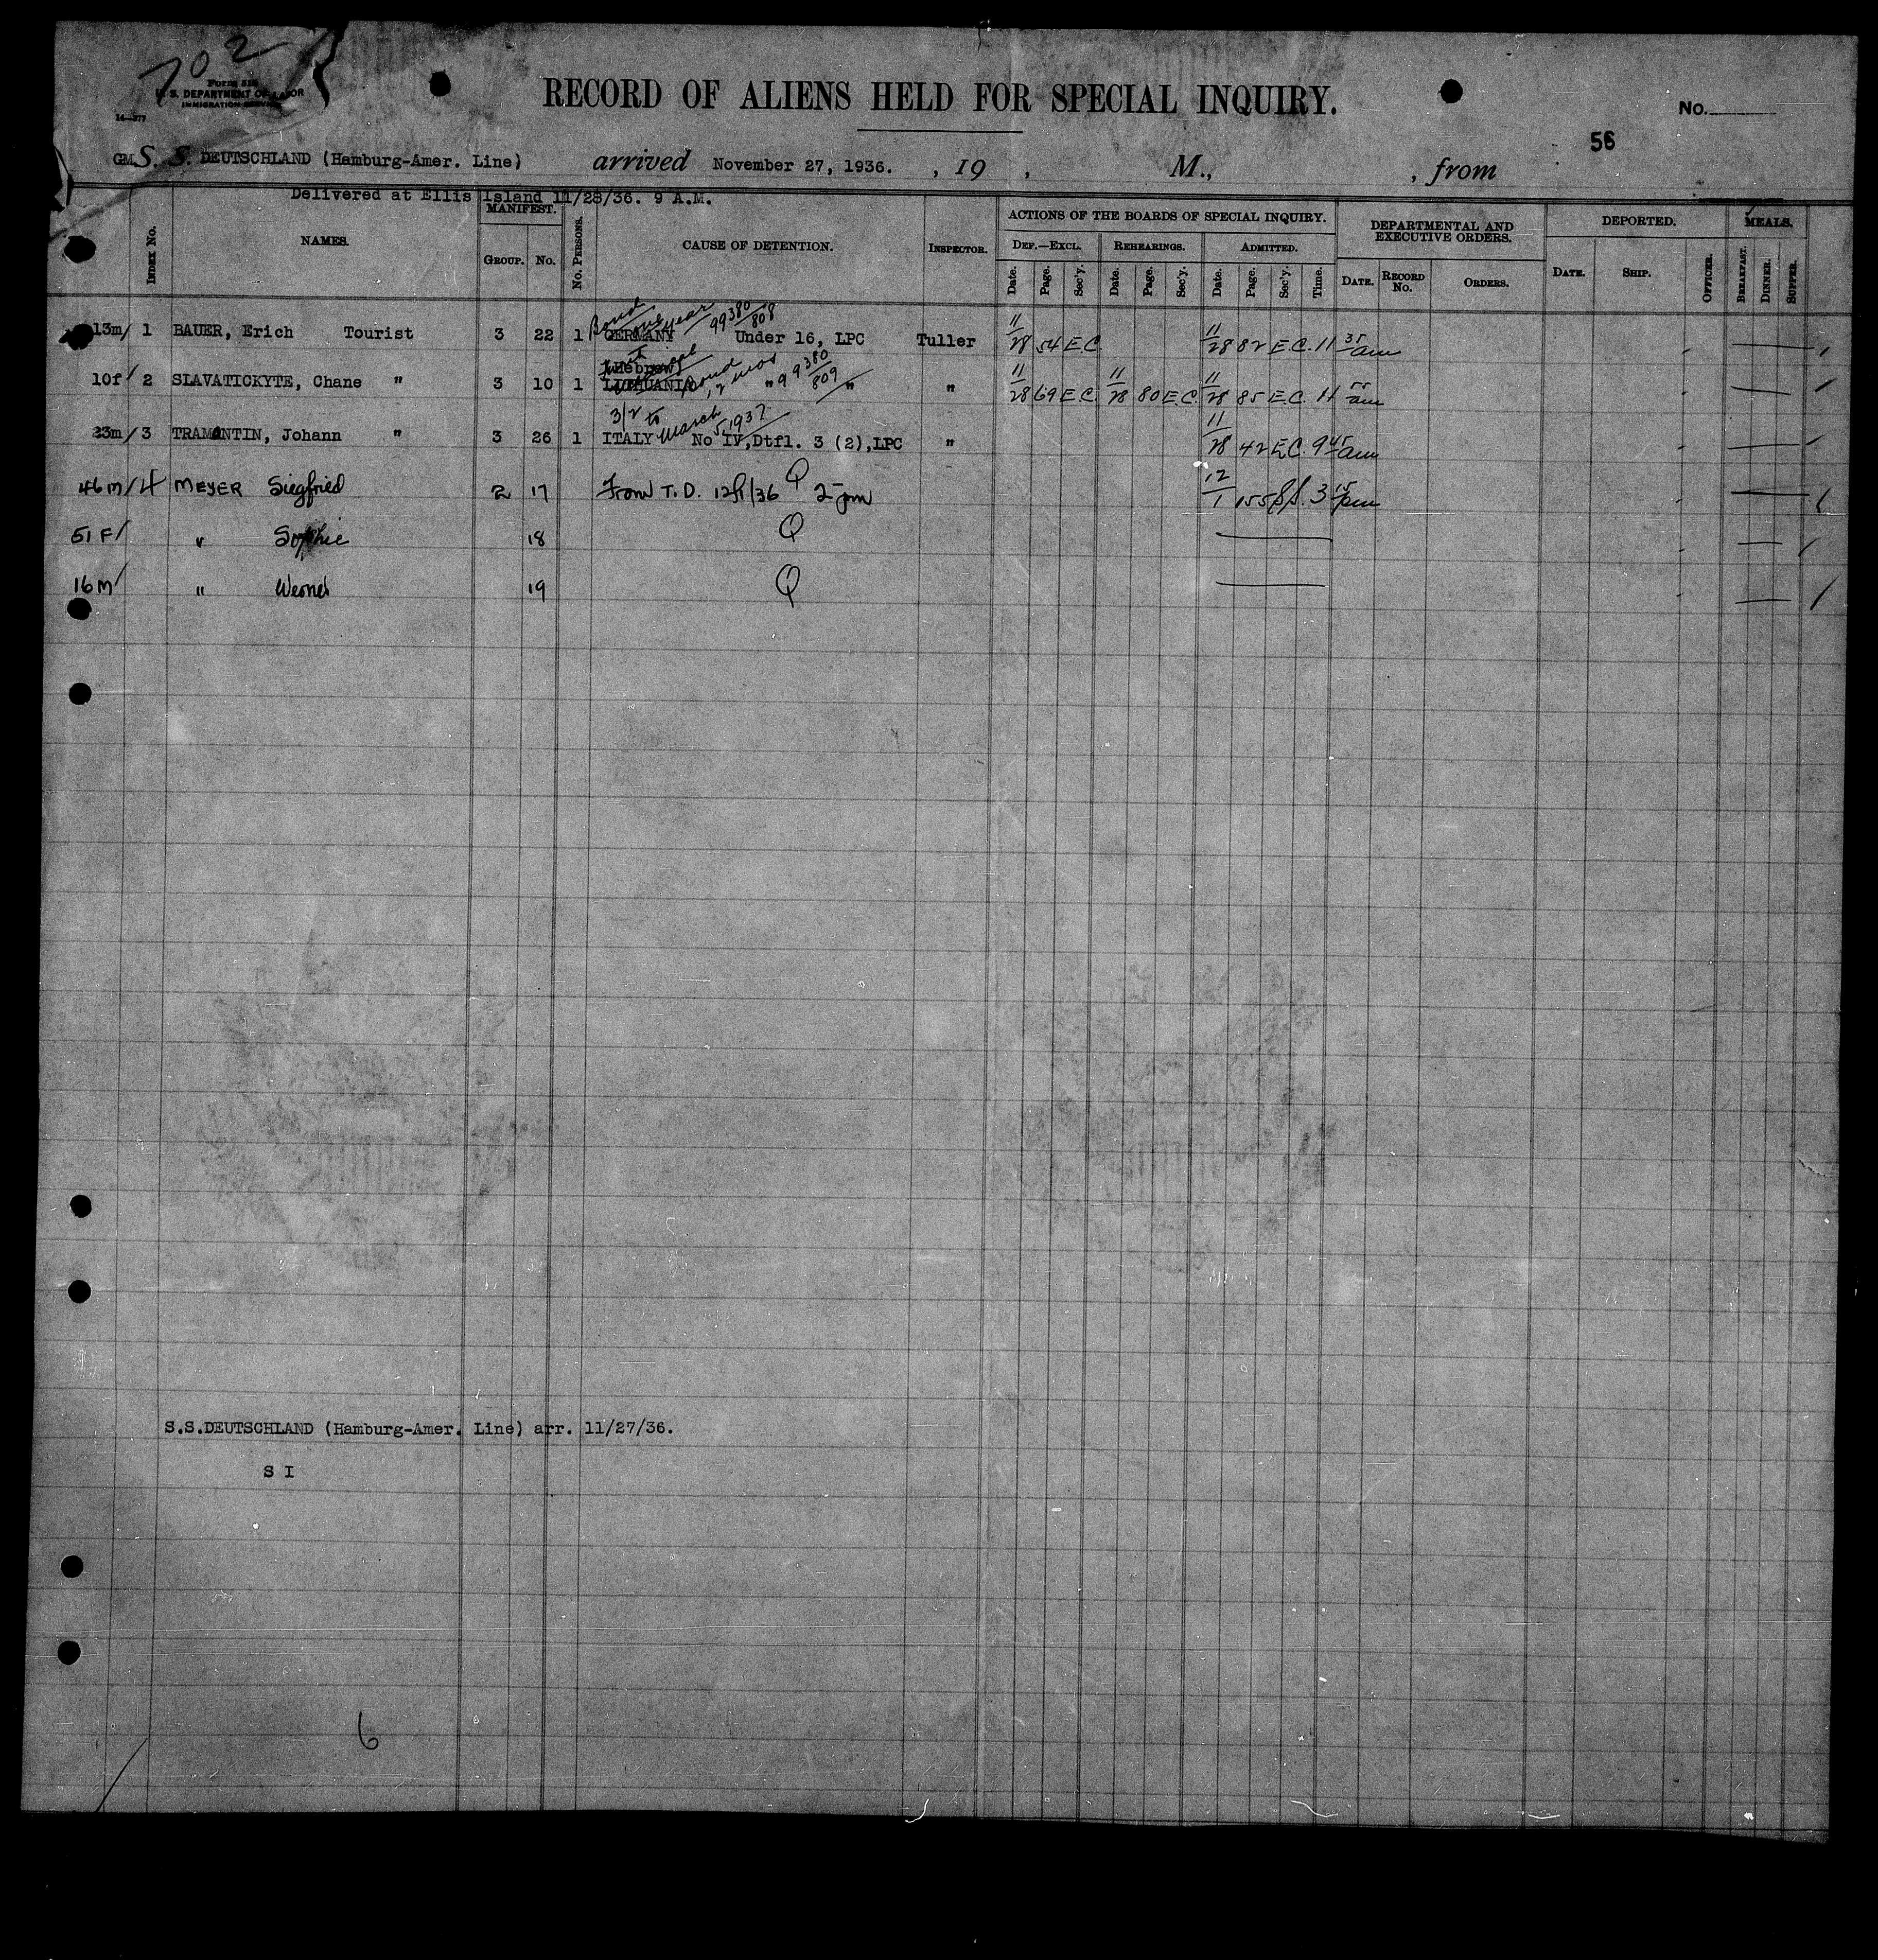 702
Form 518
U. S. DEPARTMENT OF LABOR
IMMIGRATION SERVICE
14—277
RECORD OF ALIENS HELD FOR SPECIAL INQUIRY.
No.
56
GM S. S. DEUTSCHLAND (Hamburg-Amer. Line) arrived November 27, 1936. , 19 , M., , from
Delivered at Ellis Island 11/28/36. 9 A.M.
INDEX No. NAMES. MANIFEST. GROUP. No. No. PERSONS. CAUSE OF DETENTION. INSPECTOR. ACTIONS OF THE BOARDS OF SPECIAL INQUIRY. DEPARTMENTAL AND EXECUTIVE ORDERS. DEPORTED. MEALS.
DEF.—EXCL. REHEARINGS. ADMITTED.
Date. Page. Sec'y. Date. Page. Sec'y. Date. Page. Sec'y. Time. DATE. RECORD No. ORDERS. DATE. SHIP. OFFICER. BREAKFAST. DINNER. SUPPER.
Bond one year 99380/808
13m/ 1 BAUER, Erich Tourist 3 22 1 GERMANY Under 16, LPC Tuller 11/28 54 E.C. 11/28 82 E.C. 11 35 am
(Hebrew) Bond 99380/809
10f/ 2 SLAVATICKYTE, Chane " 3 10 1 LITHUANIA " " " 11/28 69 E.C. 11/28 80 E.C. 11/28 85 E.C. 11 55 am
3/2 to March 5, 1937
23m/ 3 TRAMONTIN, Johann " 3 26 1 ITALY No IV,Dtfl. 3 (2),LPC " 11/28 42 E.C. 9 45 am
46m/ 4 MEYER Siegfried 2 17 From T.D. 12/1/36 Q 2 pm 12/1 155 S.S. 3 15 pm
51 F/ " Sophie 18 Q
16 m/ " Werner 19 Q
S.S.DEUTSCHLAND (Hamburg-Amer. Line) arr. 11/27/36.
S I
6